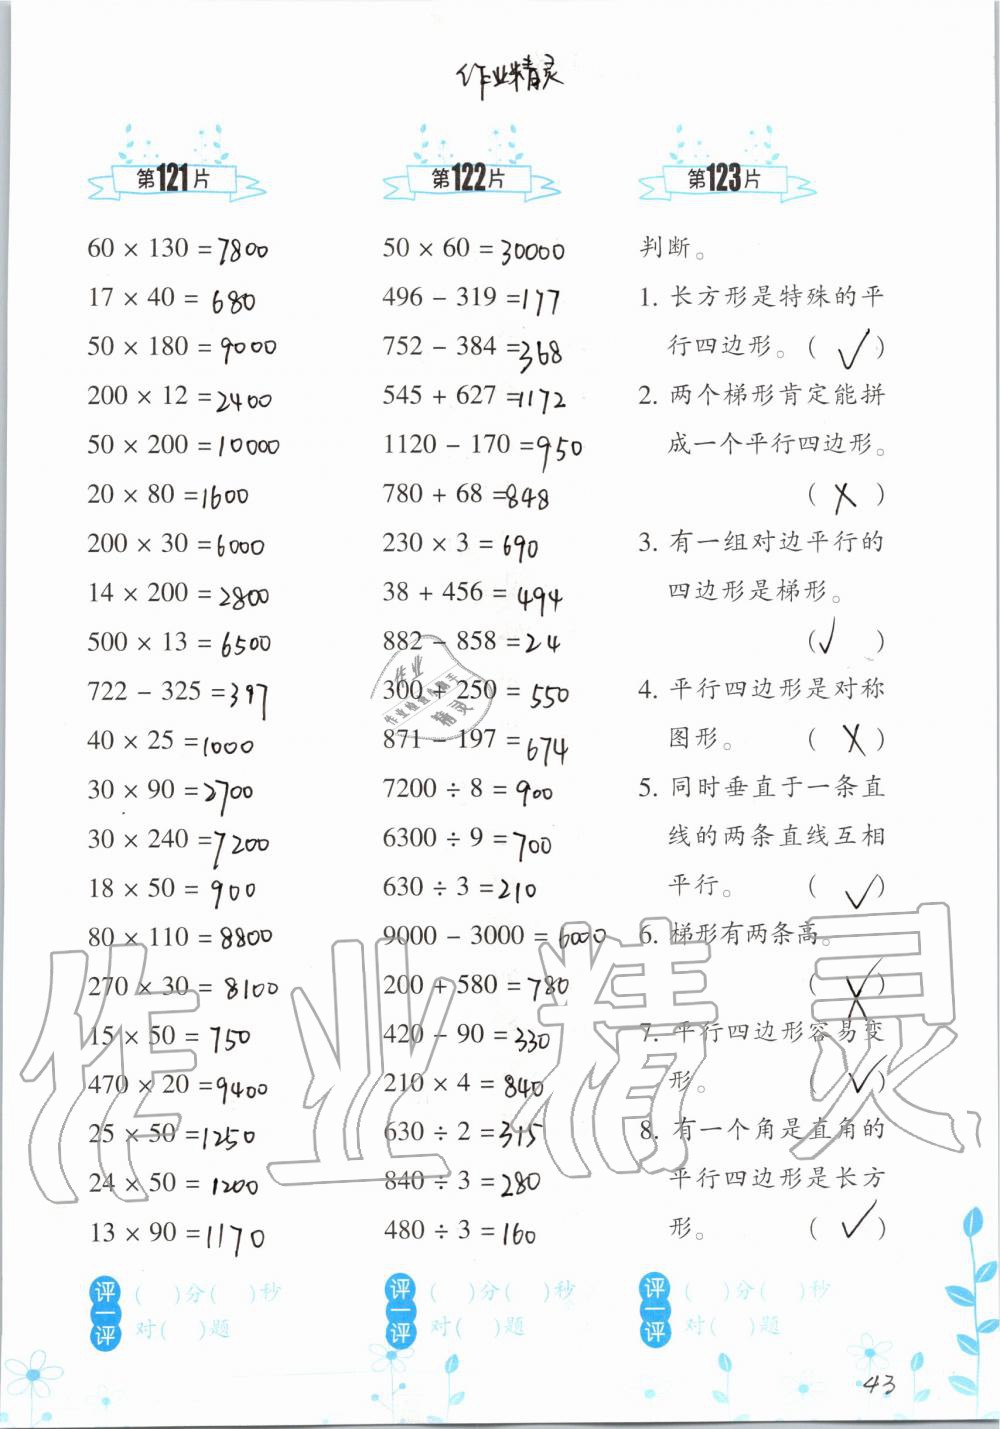 作业精灵
第121片
60 × 130 = 7800
17 × 40 = 680
50 × 180 = 9000
200 × 12 = 2400
50 × 200 = 10000
20 × 80 = 1600
200 × 30 = 6000
14 × 200 = 2800
500 × 13 = 6500
722 − 325 = 397
40 × 25 = 1000
30 × 90 = 2700
30 × 240 = 7200
18 × 50 = 900
80 × 110 = 8800
270 × 30 = 8100
15 × 50 = 750
470 × 20 = 9400
25 × 50 = 1250
24 × 50 = 1200
13 × 90 = 1170
评一评
( )分( )秒
对( )题
第122片
50 × 60 = 30000
496 − 319 = 177
752 − 384 = 368
545 + 627 = 1172
1120 − 170 = 950
780 + 68 = 848
230 × 3 = 690
38 + 456 = 494
882 − 858 = 24
300 × 250 = 550
871 − 197 = 674
7200 ÷ 8 = 900
6300 ÷ 9 = 700
630 ÷ 3 = 210
9000 − 3000 = 6000
200 + 580 = 780
420 − 90 = 330
210 × 4 = 840
630 ÷ 2 = 315
840 ÷ 3 = 280
480 ÷ 3 = 160
评一评
( )分( )秒
对( )题
第123片
判断。
1. 长方形是特殊的平
行四边形。( ✓ )
2. 两个梯形肯定能拼
成一个平行四边形。
( X )
3. 有一组对边平行的
四边形是梯形。
( ✓ )
4. 平行四边形是对称
图形。 ( X )
5. 同时垂直于一条直
线的两条直线互相
平行。 ( ✓ )
6. 梯形有两条高。
( X )
7. 平行四边形容易变
形。 ( ✓ )
8. 有一个角是直角的
平行四边形是长方
形。 ( ✓ )
评一评
( )分( )秒
对( )题
43
作业精灵